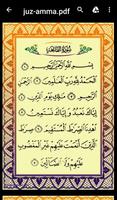 juz-amma.pdf
سُورَةُ الْفَاتِحَةِ
بِسْمِ اللَّهِ الرَّحْمَٰنِ الرَّحِيمِ
الْحَمْدُ لِلَّهِ رَبِّ الْعَٰلَمِينَ
الرَّحْمَٰنِ الرَّحِيمِ مَٰلِكِ يَوْمِ
الدِّينِ إِيَّاكَ نَعْبُدُ وَإِيَّاكَ
نَسْتَعِينُ اهْدِنَا الصِّرَٰطَ
الْمُسْتَقِيمَ صِرَٰطَ الَّذِينَ
أَنْعَمْتَ عَلَيْهِمْ غَيْرِ الْمَغْضُوبِ
عَلَيْهِمْ وَلَا الضَّالِّينَ